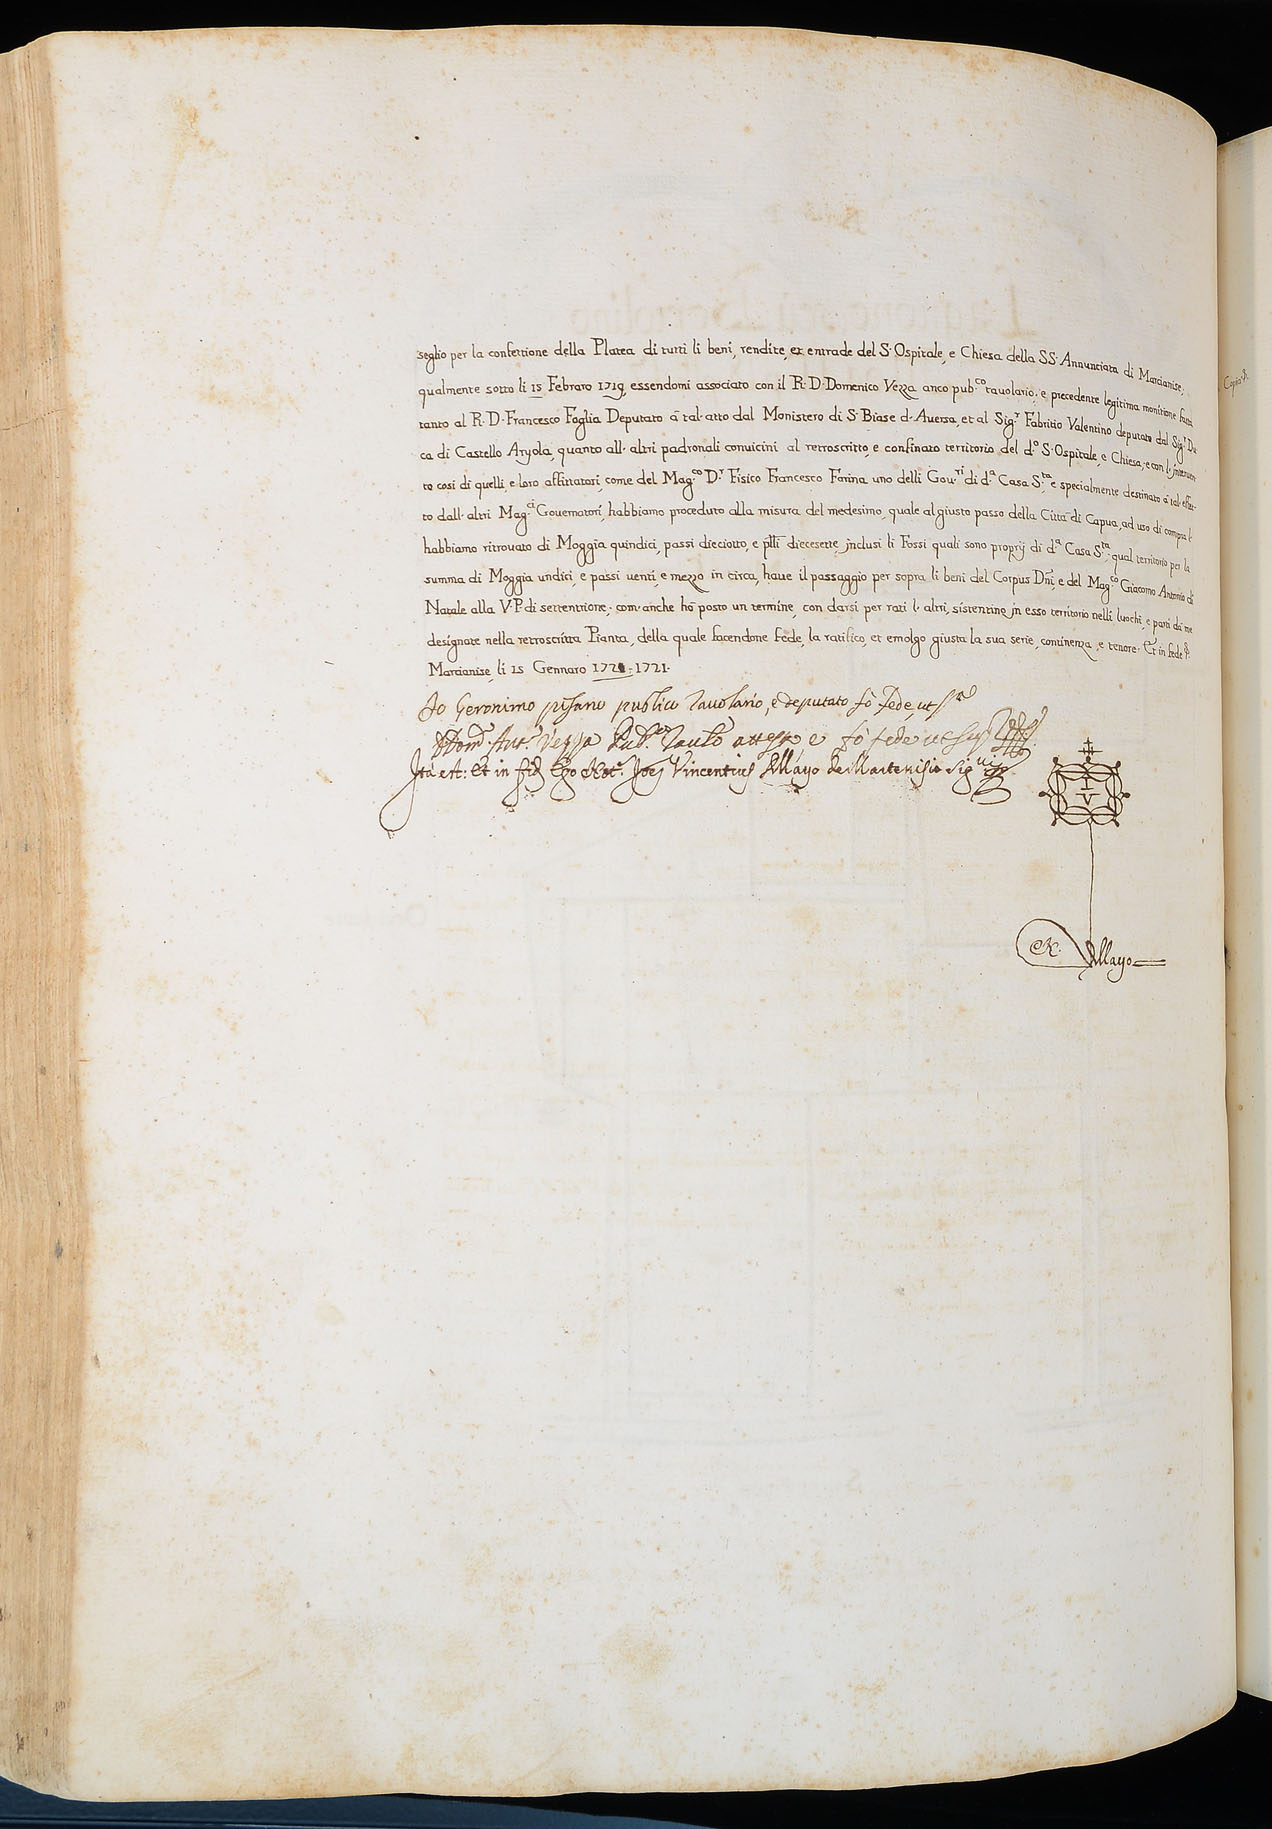 seglio per la confettione della Platea di tutti li beni, rendite, et entrade del S. Ospitale, e Chiesa della SS. Annunciata di Marcianise,
qualmente sotto li 15 Febraro 1719, essendomi associato con il R. D. Domenico Vezza anco pub.co tavolario; e precedente legitima monitione
tanto al R. D. Francesco Foglia Deputato à tal' atto dal Monistero di S. Biase d'Aversa, et al Sig.r Fabritio Valentino deputato dal Sig.r Du
ca di Castello Aryola, quanto all' altri padronali convicini al retroscritto, e confinato territorio del d.o S. Ospitale, e Chiesa; e con l'
to così di quelli, e loro affittatori, come del Mag.co D.r Fisico Francesco Farina uno delli Gov.ri di d.a Casa S.ta, e specialmente destinato à tal' effet-
to dall' altri Mag.ci Governatori, habbiamo proceduto alla misura del medesimo, quale al giusto passo della Città di Capua, ad uso di compra l'
habbiamo ritrovato di Moggia quindici, passi dieciotto, e pssi diecesette, inclusi li Fossi quali sono proprij di d.a Casa S.ta; qual territorio per la
summa di Moggia undici, e passi venti, e mezzo in circa, have il passaggio per sopra li beni del Corpus Dñi, e del Mag.co Giacomo Antonio di
Natale alla V. P. di settentrione; com' anche hò posto un termine, con darsi per rati l' altri, sistentino in esso territorio nelli luochi, e parti dà me
designate nella retroscritta Pianta, della quale facendone fede, la ratifico, et emolgo giusta la sua serie, continenza, e tenore. Et in fede
Marcianise, li 15 Gennaro 1721. 1721.
Io Geronimo pisano publico tavolario, e deputato fò fede, ut s.ra
D. Dom.co Ant.o Vezza Pub.o Taul.o attesto e fò fede ut sup.
Ità est: Et in fid. Ego Not.s Joes Vincentius Mayo de Martenisio sig.vi
I
V
N. Mayo